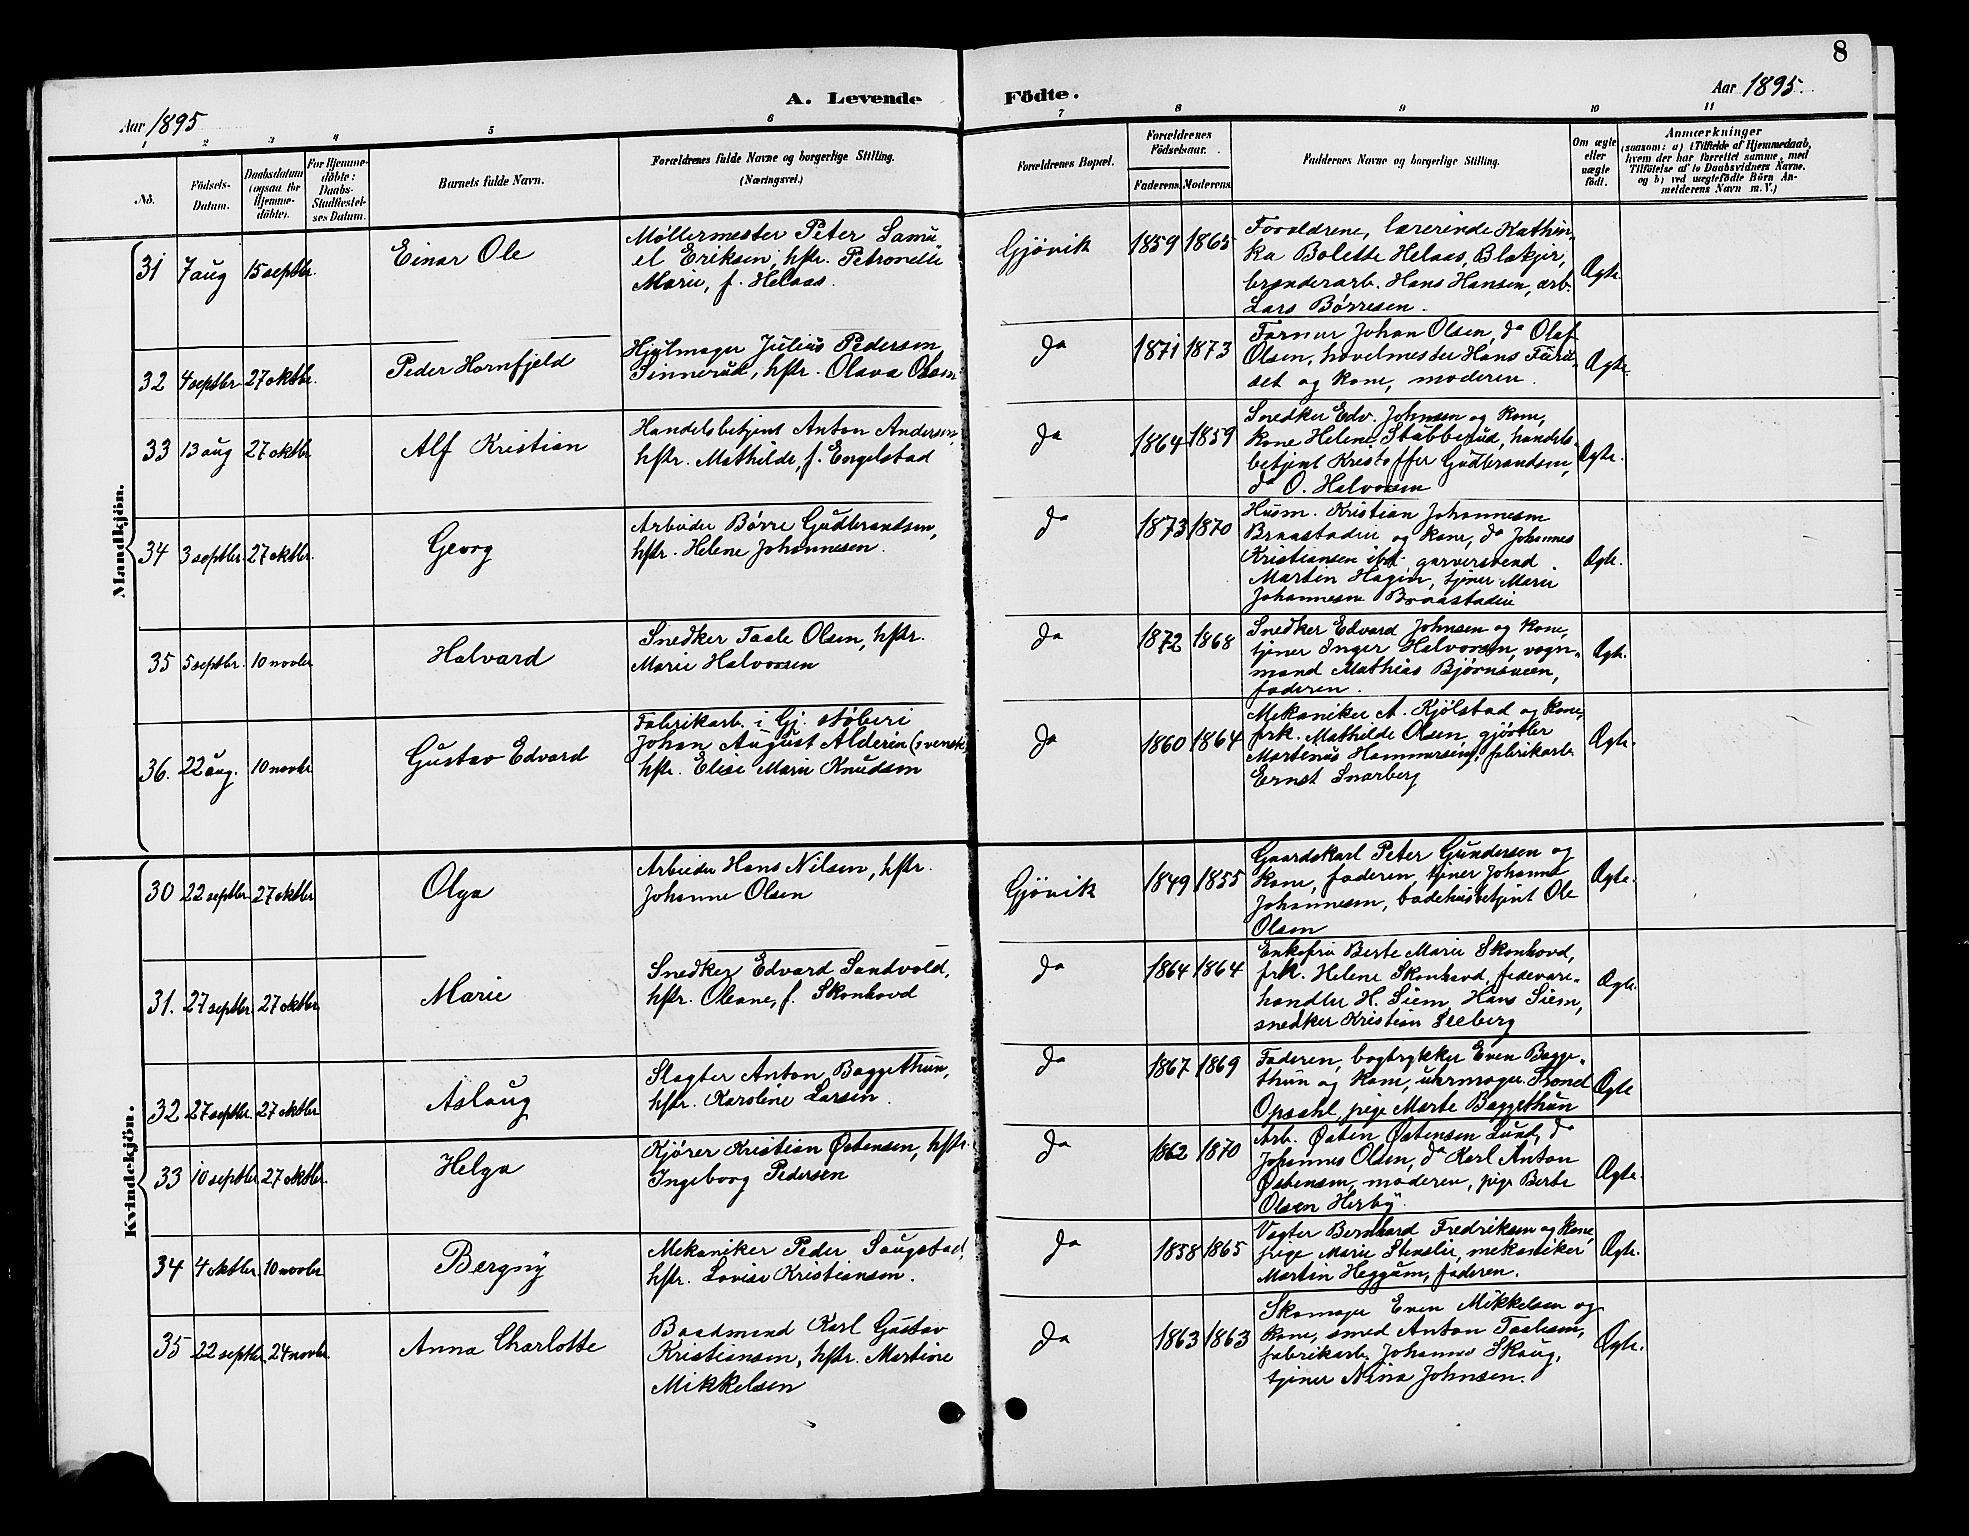 8
A. Levende Födte.
Aar 1895
Aar 1895.
1 2 3 4 5 6 7 8 9 10 11
No.
Födsels-
Datum.
Daabsdatum
(ogsaa for
Hjemme-
döbte).
For Hjemme-
döbte:
Daabs-
Stadfæstel-
ses Datum.
Barnets fulde Navn.
Forældrenes fulde Navne og borgerlige Stilling.
(Næringsvei.)
Forældrenes Bopæl.
Forældrenes
Födselsaar.
Faderens. Moderens.
Faddernes Navne og borgerlige Stilling.
Om ægte
eller
uægte
födt.
Anmærkninger
(saasom: a) i Tilfælde af Hjemmedaab,
hvem der har forrettet samme, med
Tilföielse af to Daabsvidners Navne.
og b) ved uægtefödte Börn An-
melderens Navn m. V.)
Mandkjön.
31 7 aug 15 septbr. Einar Ole
Møllermester Peter Samu
el Eriksen, hstr. Petronelle
Marie, f. Helaas.
Gjövik 1859 1865
Forældrene, lærerinde Kathin-
ka Bolette Helaas, Blakjer,
brænderarb. Hans Hansen, arb.
Lars Børresen.
Ægte.
32 4 septbr. 27 oktbr. Peder Hornfjeld
Hjulmager Julius Pedersen
Sinnerud, hstr. Olava Olsen
do 1871 1873
Farmor Johan Olsen, do Olaf
Olsen, høvelmester Hans Furu-
set og kone, moderen.
Ægte.
33 13 aug 27 oktbr. Alf Kristian
Handelsbetjent Anton Andersen,
hstr. Mathilde, f. Engelstad
do 1864 1859
Snedker Edv. Johnsen og kone,
kone Helene Stabberud, handels-
betjent Kristoffer Gudbrandsen,
do O. Halvorsen
Ægte.
34 3 septbr. 27 oktbr. Georg
Arbeider Børre Gudbrandsen,
hstr. Helene Johannesen.
do 1873 1870
Husm. Kristian Johannesen
Braastadeie og kone, do Johannes
Kristiansen ibd. garversvend
Martin Hagen, tjener Marie
Johannesen Braastadeie
Ægte.
35 5 septbr. 10 novbr Halvard
Snedker Taale Olsen, hstr.
Marie Halvorsen
do 1872 1868
Snedker Edvard Johnsen og kone,
tjener Inger Halvorsen, vogn-
mand Mathias Bjørnsveen,
faderen.
Ægte.
36. 22 aug. 10 novbr Gustav Edvard
Fabrikarb. i Gj. støberi
Johan August Alderin (svensk)
hstr. Elise Marie Knudsen
do 1860 1864
Mekaniker A. Kjølstad og kone,
frk. Mathilde Olsen, gjørtler
Martenus Hammerseng, fabrikarb.
Ernst Snarberg
Ægte.
Kvindekjön.
30 22 septbr. 27 oktbr Olga
Arbeider Hans Nilsen, hstr.
Johanne Olsen
Gjövik 1849 1855
Gaardskarl Peter Gundersen og
kone, faderen, tjener Johanne
Johannesen, badehusbetjent Ole
Olsen
Ægte.
31. 27 septbr 27 oktbr Marie
Snedker Edvard Sandvold,
hstr. Oleane, f. Skonhovd
do 1864 1864
Enkefru Berte Marie Skonhovd,
frk. Helene Skonhovd, fedevare-
handler H. Siem, Hans Siem,
snedker Kristian Seeberg
Ægte.
32 27 septbr 27 oktbr Aslaug
Slagter Anton Baggethun,
hstr. Karoline Larsen.
do 1867 1869
Faderen, bogtrykker Even Bagge-
thun og kone, uhrmager Trond
Opsahl, pige Marte Baggethun
Ægte
33 10 septbr 27 oktbr. Helga
Kjører Kristian Østensen, hstr.
Ingeborg Pedersen
do 1862 1870
Arb. Østen Østensen Lund, do
Johannes Olsen, do Karl Anton
Østensen, moderen, pige Berte
Olsen Herby.
Ægte.
34 4 oktbr. 10 novbr Bergny
Mekaniker Peder Saugstad,
hstr. Lovise Kristiansen.
do 1858 1865
Vagter Bernhard Fredriksen og kone,
pige Marie Stenslie, mekaniker
Martin Heggum, faderen.
Ægte.
35 22 septbr. 24 novbr Anna Charlotte
Baadmand Karl Gustav
Kristiansen, hstr. Martine
Mikkelsen
do 1863 1863
Skomager Even Mikkelsen og
kone, smed Anton Taalesen,
fabrikarb. Johannes Skaug,
tjener Nina Johnsen.
Ægte.